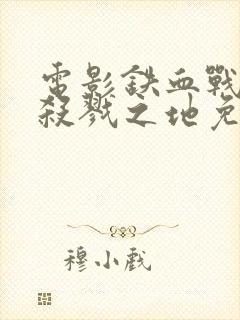 電影鉄血戰
殺戮之地免
穆小戲